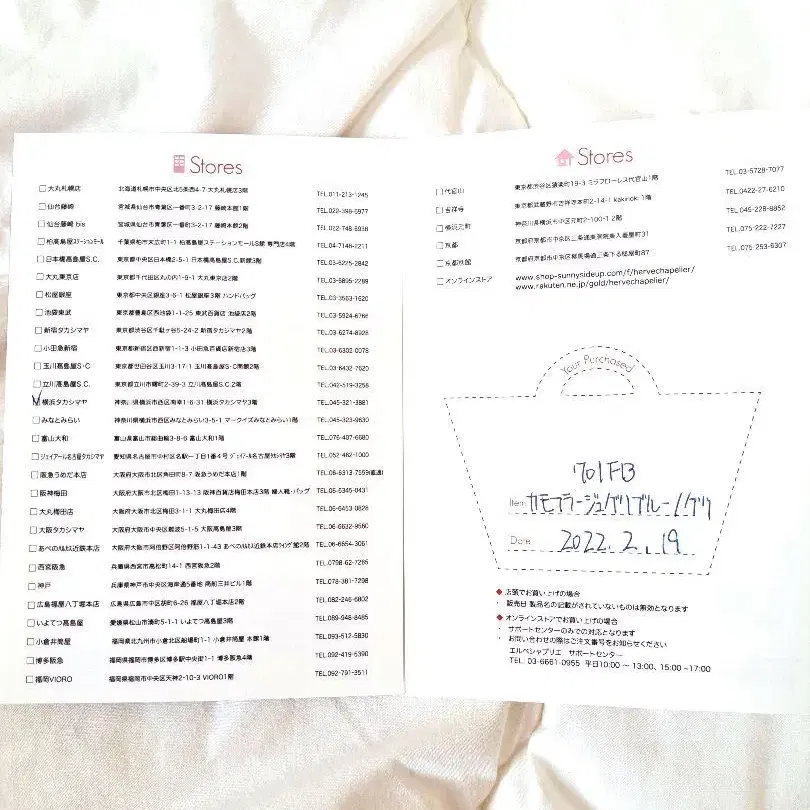 Stores
大丸札幌店 北海道札幌市中央区北5条西4-7 大丸札幌店3階 TEL.011-213-1245
仙台藤崎 宮城県仙台市青葉区一番町3-2-17 藤崎本館1階 TEL.022-398-6977
仙台藤崎 bis 宮城県仙台市青葉区一番町3-2-17 藤崎本館2階 TEL.022-748-6938
柏髙島屋ステーションモール 千葉県柏市末広町1-1 柏髙島屋ステーションモールS館 専門店4階 TEL.04-7148-2211
日本橋髙島屋S.C. 東京都中央区日本橋2-5-1 日本橋髙島屋S.C.新館3階 TEL.03-6225-2842
大丸東京店 東京都千代田区丸の内1-9-1 大丸東京店2階 TEL.03-6895-2289
松屋銀座 東京都中央区銀座3-6-1 松屋銀座3階 ハンドバッグ TEL.03-3563-1620
池袋東武 東京都豊島区西池袋1-1-25 東武百貨店 池袋店2階 TEL.03-5924-6766
新宿タカシマヤ 東京都渋谷区千駄ヶ谷5-24-2 新宿タカシマヤ2階 TEL.03-6274-8928
小田急新宿 東京都新宿区西新宿1-1-3 小田急百貨店新宿店3階 TEL.03-6302-0078
玉川髙島屋S・C 東京都世田谷区玉川3-17-1 玉川髙島屋S・C南館2階 TEL.03-6432-7620
立川髙島屋S.C. 東京都立川市曙町2-39-3 立川髙島屋S.C.2階 TEL.042-519-3258
横浜タカシマヤ 神奈川県横浜市西区南幸1-6-31 横浜タカシマヤ3階 TEL.045-321-3881
みなとみらい 神奈川県横浜市西区みなとみらい3-5-1 マークイズみなとみらい1階 TEL.045-323-9630
富山大和 富山県富山市総曲輪3-8-6 富山大和1階 TEL.076-407-6680
ジェイアール名古屋タカシマヤ 愛知県名古屋市中村区名駅一丁目1番4号 ジェイアール名古屋タカシマヤ3階 TEL.052-462-1000
阪急うめだ本店 大阪府大阪市北区角田町8-7 阪急うめだ本店1階 TEL.06-6313-7559(直通)
阪神梅田 大阪府大阪市北区梅田1-13-13 阪神百貨店梅田本店3階 婦人靴・バッグ TEL.06-6345-0431
大丸梅田店 大阪府大阪市北区梅田3-1-1 大丸梅田店4階 TEL.06-6453-0828
大阪タカシマヤ 大阪府大阪市中央区難波5-1-5 大阪髙島屋3階 TEL.06-6632-9560
あべのハルカス近鉄本店 大阪府大阪市阿倍野区阿倍野筋1-1-43 あべのハルカス近鉄本店ウイング館2階 TEL.06-6654-3061
西宮阪急 兵庫県西宮市高松町14-1 西宮阪急2階 TEL.0798-62-7265
神戸 兵庫県神戸市中央区海岸通5番地 商船三井ビル1階 TEL.078-381-7298
広島福屋八丁堀本店 広島県広島市中区胡町6-26 福屋八丁堀本店2階 TEL.082-246-6802
いよてつ髙島屋 愛媛県松山市湊町5-1-1 いよてつ髙島屋3階 TEL.089-948-8485
小倉井筒屋 福岡県北九州市小倉北区船場町1-1 小倉井筒屋 本館1階 TEL.093-512-5830
博多阪急 福岡県福岡市博多区博多駅中央街1-1 博多阪急4階 TEL.092-419-5390
福岡VIORO 福岡県福岡市中央区天神2-10-3 VIORO1階 TEL.092-791-3511
Stores
代官山 東京都渋谷区猿楽町19-3 ミラフローレス代官山1階 TEL.03-5728-7077
吉祥寺 東京都武蔵野市吉祥寺本町2-14-1 kakinoki 1階 TEL.0422-27-6210
横浜元町 神奈川県横浜市中区元町2-100-1 2階 TEL.045-228-8852
京都 京都府京都市中京区三条通東洞院東入菱屋町31 TEL.075-222-7227
京都別館 京都府京都市中京区柳馬場通三条下る槌屋町87 TEL.075-253-6307
オンラインストア www.shop-sunnysideup.com/f/hervechapelier/
www.rakuten.ne.jp/gold/hervechapelier/
Your Purchased
701FB
Item カモフラージュ/グリブルー//グリ
Date 2022.2.19
◆ 店頭でお買い上げの場合
・ 販売日 製品名の記載がされていないものは無効となります
◆ オンラインストアでお買い上げの場合
・ サポートセンターのみでの対応となります
・ お問い合わせの際はご注文番号をお知らせください
エルベシャプリエ サポートセンター
TEL. 03-6661-0955 平日10:00 ～ 13:00、15:00 ~17:00